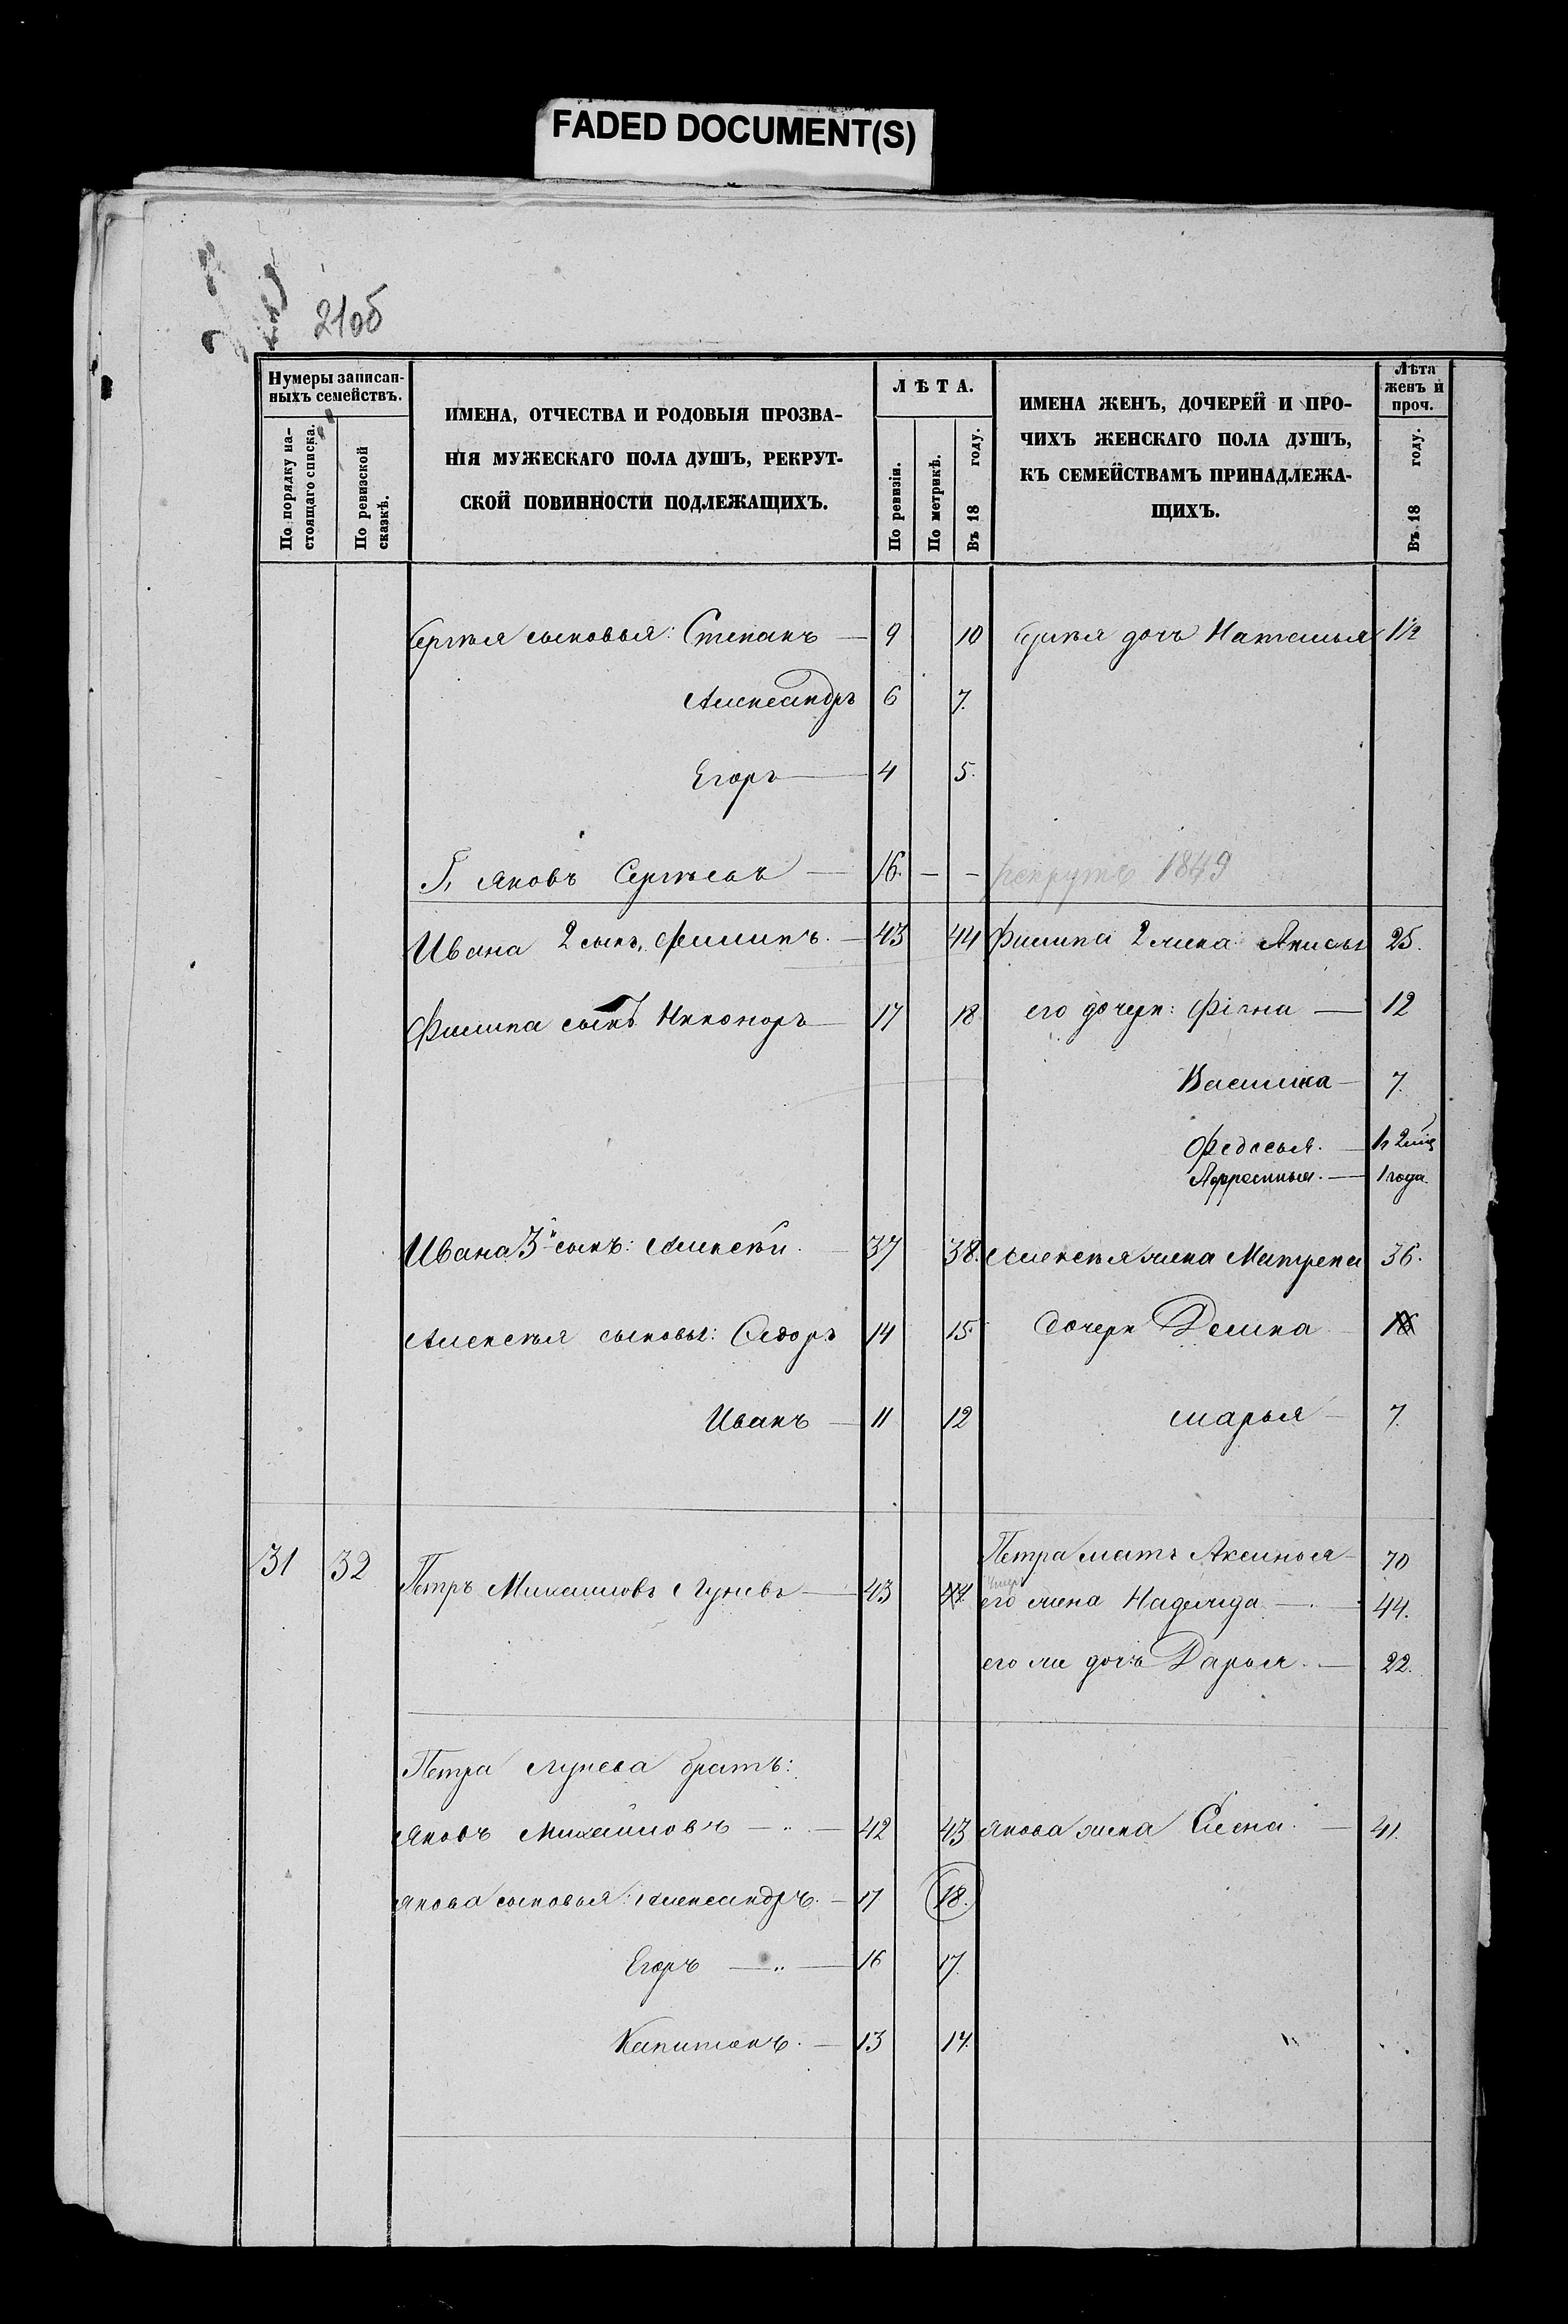 FADED DOCUMENT(S)
21об
Нумеры записан-
ныхъ семействъ.
По порядку на-
стоящаго списка.
По ревизской
сказкѣ.
ИМЕНА, ОТЧЕСТВА И РОДОВЫЯ ПРОЗВА-
НІЯ МУЖЕСКАГО ПОЛА ДУШЪ, РЕКРУТ-
СКОЙ ПОВИННОСТИ ПОДЛЕЖАЩИХЪ.
ЛѢТА.
По ревизіи.
По метрикѣ.
Въ 18 году.
ИМЕНА ЖЕНЪ, ДОЧЕРЕЙ И ПРО-
ЧИХЪ ЖЕНСКАГО ПОЛА ДУШЪ,
КЪ СЕМЕЙСТВАМЪ ПРИНАДЛЕЖА-
ЩИХЪ.
Лѣта
женъ и
проч.
Въ 18 году.
Сергѣя сыновья: Степанъ — 9 10 дочь Наталья 1½
Александръ 6 7.
Егоръ — 4 5.
Яковъ Сергѣевъ — 16. — — рекрутъ 1849
Ивана 2 сынъ, Филипъ. — 43 44 Филипа 2 жена Анисья 25.
Филипа сынъ Никоноръ — 17 18 его дочери: Фёкла — 12
Василиса — 7.
Федосья. —
— 1 года.
Ивана 3й сынъ: Алексѣй. — 37 38. Алексѣя жена Матрена 36.
Алексѣя сыновья: Сидоръ 14 15 дочери —
Иванъ — 11 12 Марья — 7.
31 32 Петръ Михайловъ Луневъ — 43 44. Петра мать Аксинья — 70
его жена Надежда — 44.
его же дочь Дарья. — 22.
Петра Лунева братъ:
Яковъ Михайловъ — „ — 42 43 Якова жена Елена. — 41.
Якова сыновья: Александръ. — 17 18.
Егоръ — „ — 16 17.
Капитонъ. — 13 14.